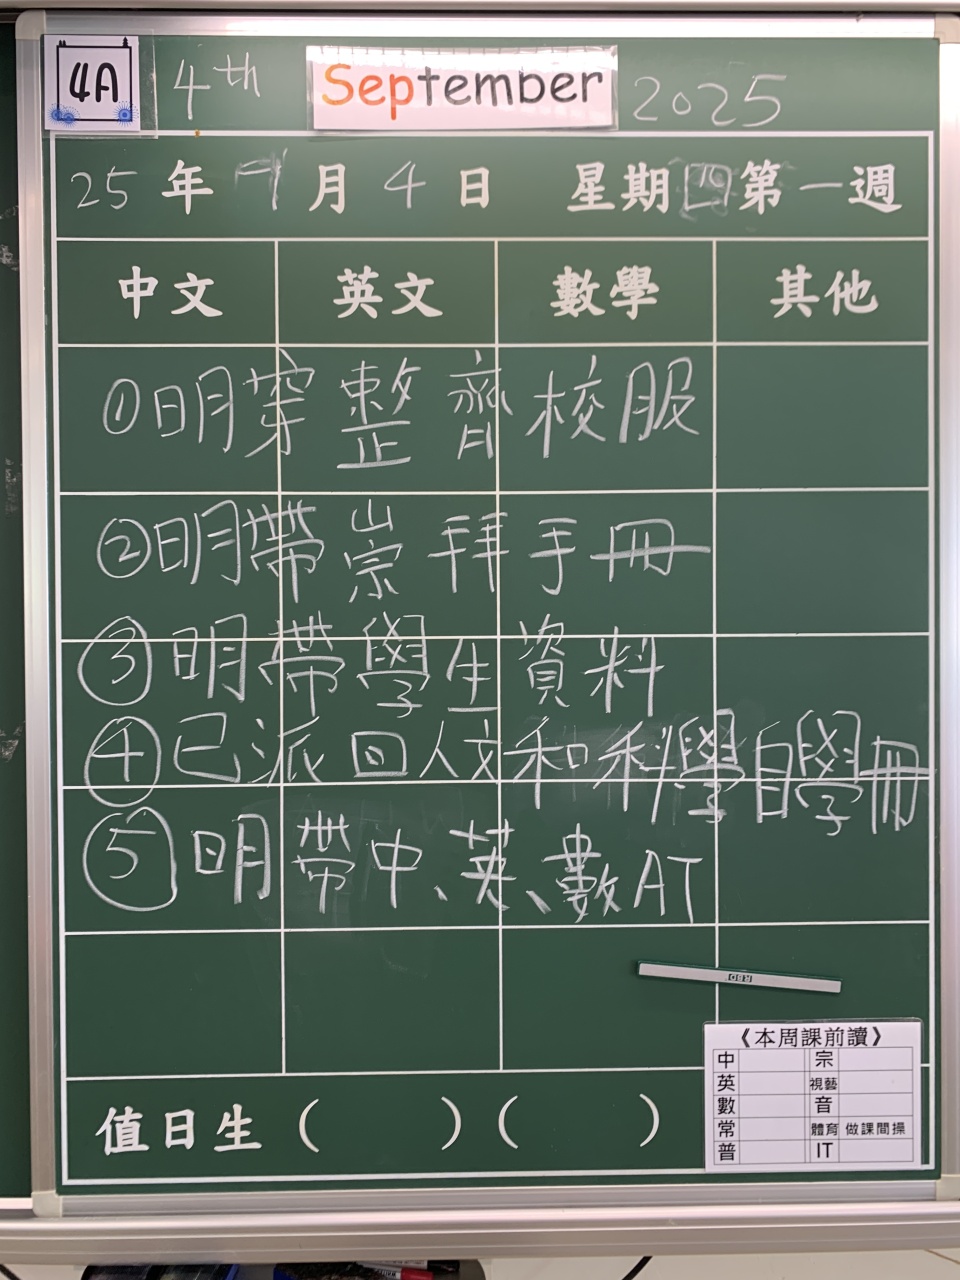 4A 4th September 2025
25年9月4日 星期四第一週
中文 英文 數學 其他
①明穿整齊校服
②明帶崇拜手冊
③明帶學生資料
④已派回人文和科學自學冊
⑤明帶中、英、數AT
RBD
《本周課前讀》
中 宗
英 視藝
數 音
常 體育 做課間操
普 IT
值日生( )( )